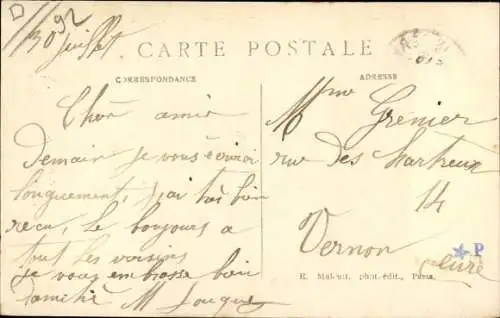 D 92
30 juillet
CARTE POSTALE
CORRESPONDANCE
ADRESSE
Chère amie
Demain je vous écrirai
longuement, j'ai très bien
reçu, le bonjours a
tout les voisins
je vous embrasse bien
amitié M
Mme Grenier
rue des Chartreux
14
Vernon
Eure
P
E. phot.-édit., Paris.